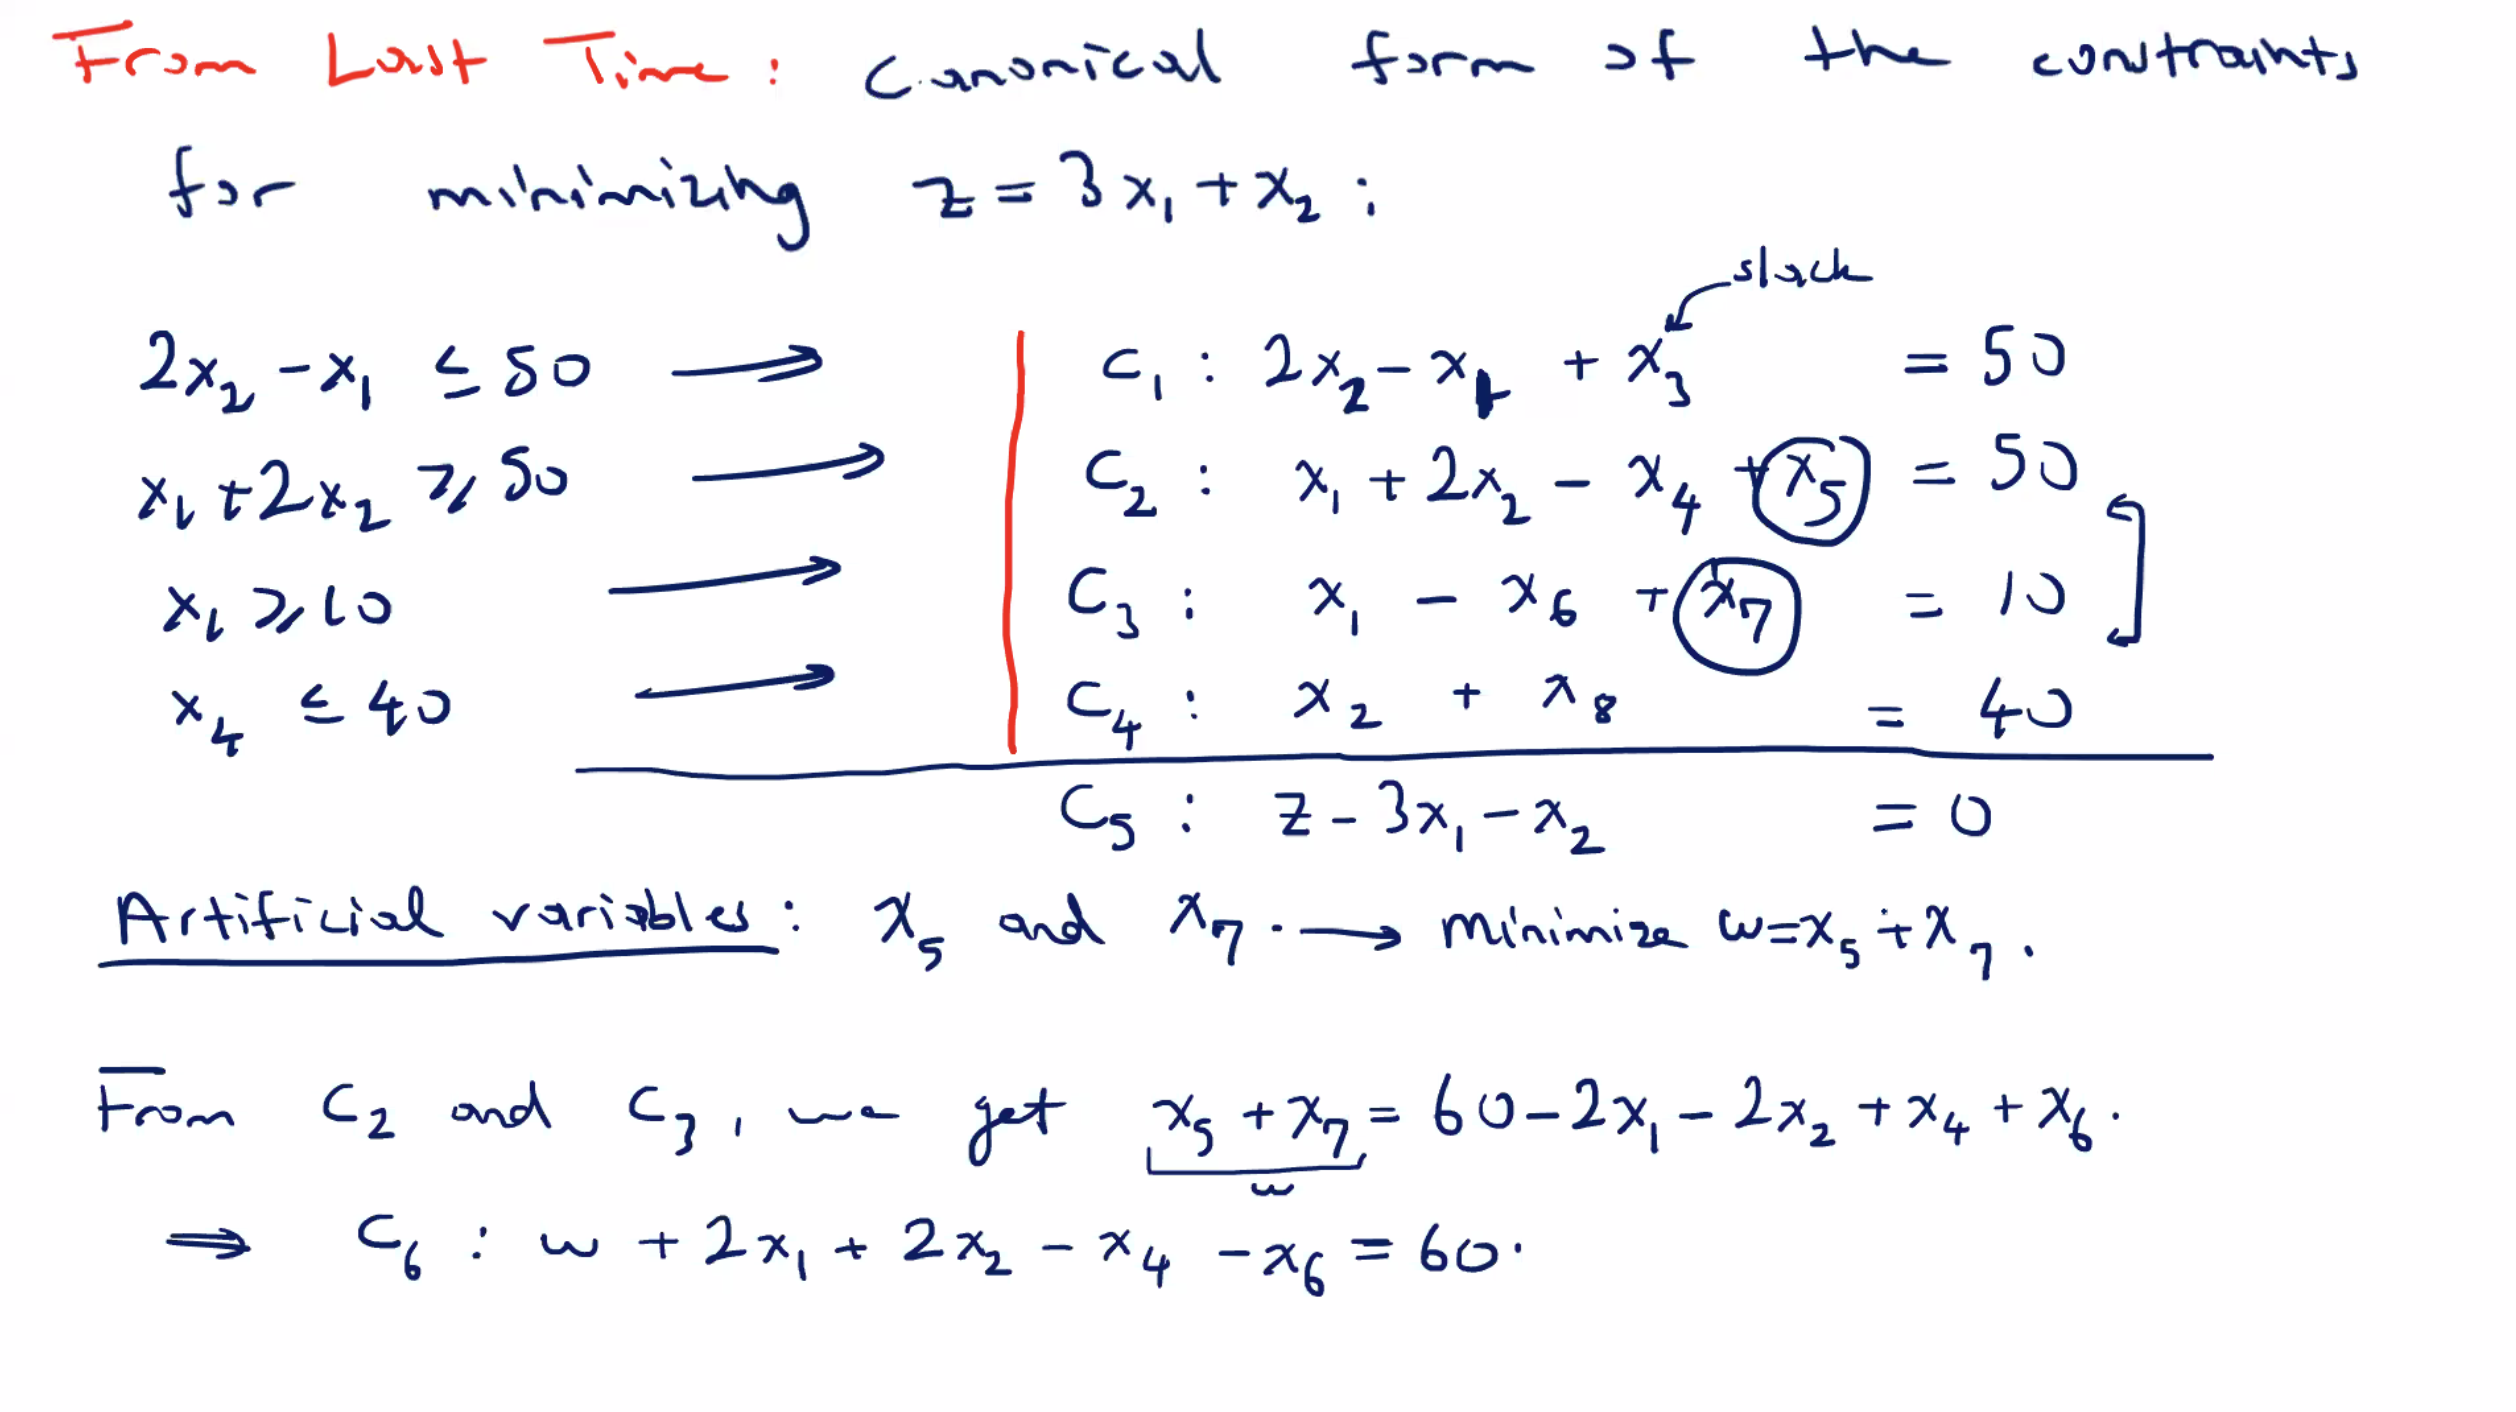 From Last Time: Canonical form of the constraints
for minimizing z = 3x₁ + x₂ :
slack
2x₂ - x₁ ≤ 50 ⟶ C₁ : 2x₂ - x₁ + x₃ = 50
x₁ + 2x₂ ≥ 50 ⟶ C₂ : x₁ + 2x₂ - x₄ + x₅ = 50
x₁ ≥ 10 ⟶ C₃ : x₁ - x₆ + x₇ = 10
x₄ ≤ 40 ⟶ C₄ : x₂ + x₈ = 40
C₅ : z - 3x₁ - x₂ = 0
Artificial variables: x₅ and x₇. ⟶ minimize w = x₅ + x₇.
From C₂ and C₃, we get x₅ + x₇ = 60 - 2x₁ - 2x₂ + x₄ + x₆.
w
⇒ C₆ : w + 2x₁ + 2x₂ - x₄ - x₆ = 60.